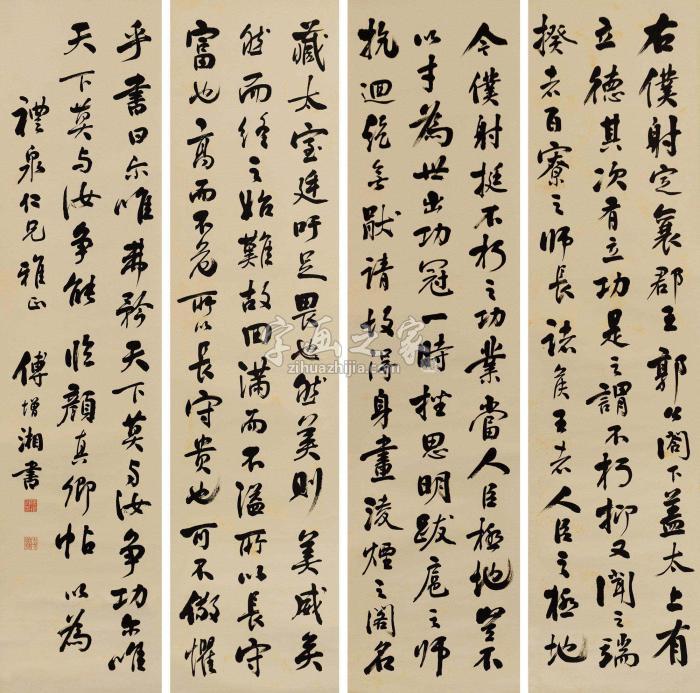 右僕射定襄郡王郭公閤下蓋太上有
立德其次有立功是之謂不朽抑又聞之端
揆者百寮之師長諸侯王者人臣之極地
今僕射挺不朽之功業當人臣極地豈不
以才為世出功冠一時挫思明跋扈之師
抗迴紇無猒請故得身畫淩煙之閣名
藏太室廷吁足畏也然美則美矣
然而終之始難故曰滿而不溢所以長守
富也高而不危所以長守貴也可不儆懼
乎書曰尔唯弗矜天下莫与汝争功尔唯
天下莫与汝争能 臨顏真卿帖以為
禮泉仁兄雅正 傅增湘書
字画之家
zihuazhijia.com